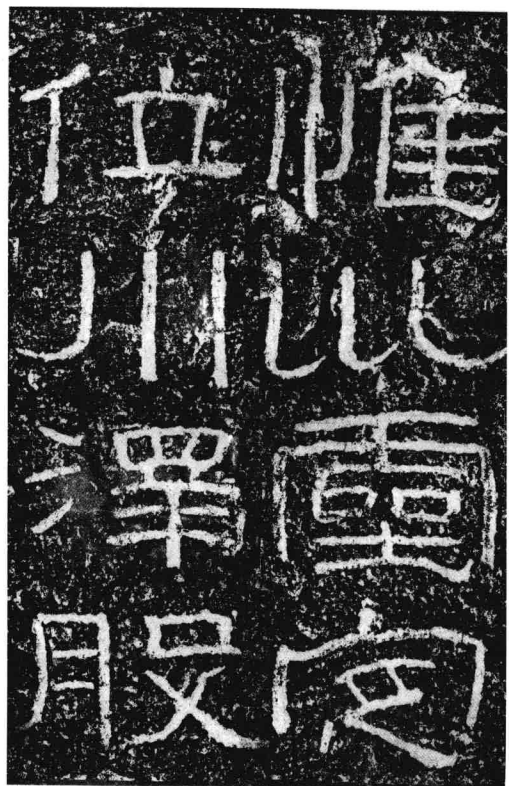 惟巛靈定
位川澤股